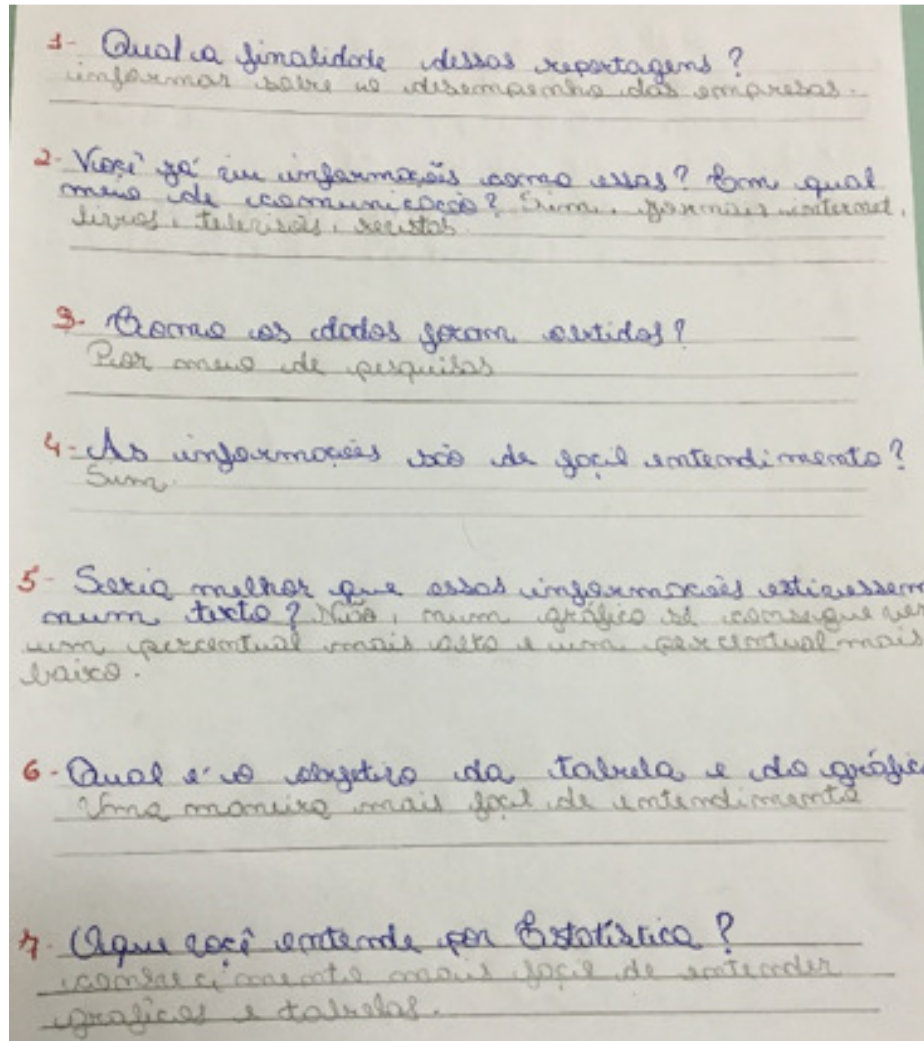 1- Qual a finalidade dessas reportagens?
informar sobre o desempenho das empresas.
2- Você já viu informações como essas? Em qual
meio de comunicação? Sim, jornais internet,
livros, televisão, revistas
3- Como os dados foram obtidos?
Por meio de pesquisas
4- As informações são de fácil entendimento?
Sim.
5- Seria melhor que essas informações estivessem
num texto? Não, num gráfico se consegue ver
um percentual mais alto e um percentual mais
baixo.
6- Qual é o objetivo da tabela e do gráfic
Uma maneira mais fácil de entendimento
7- O que você entende por Estatística?
conhecimento mais fácil de entender
graficos e tabelas.